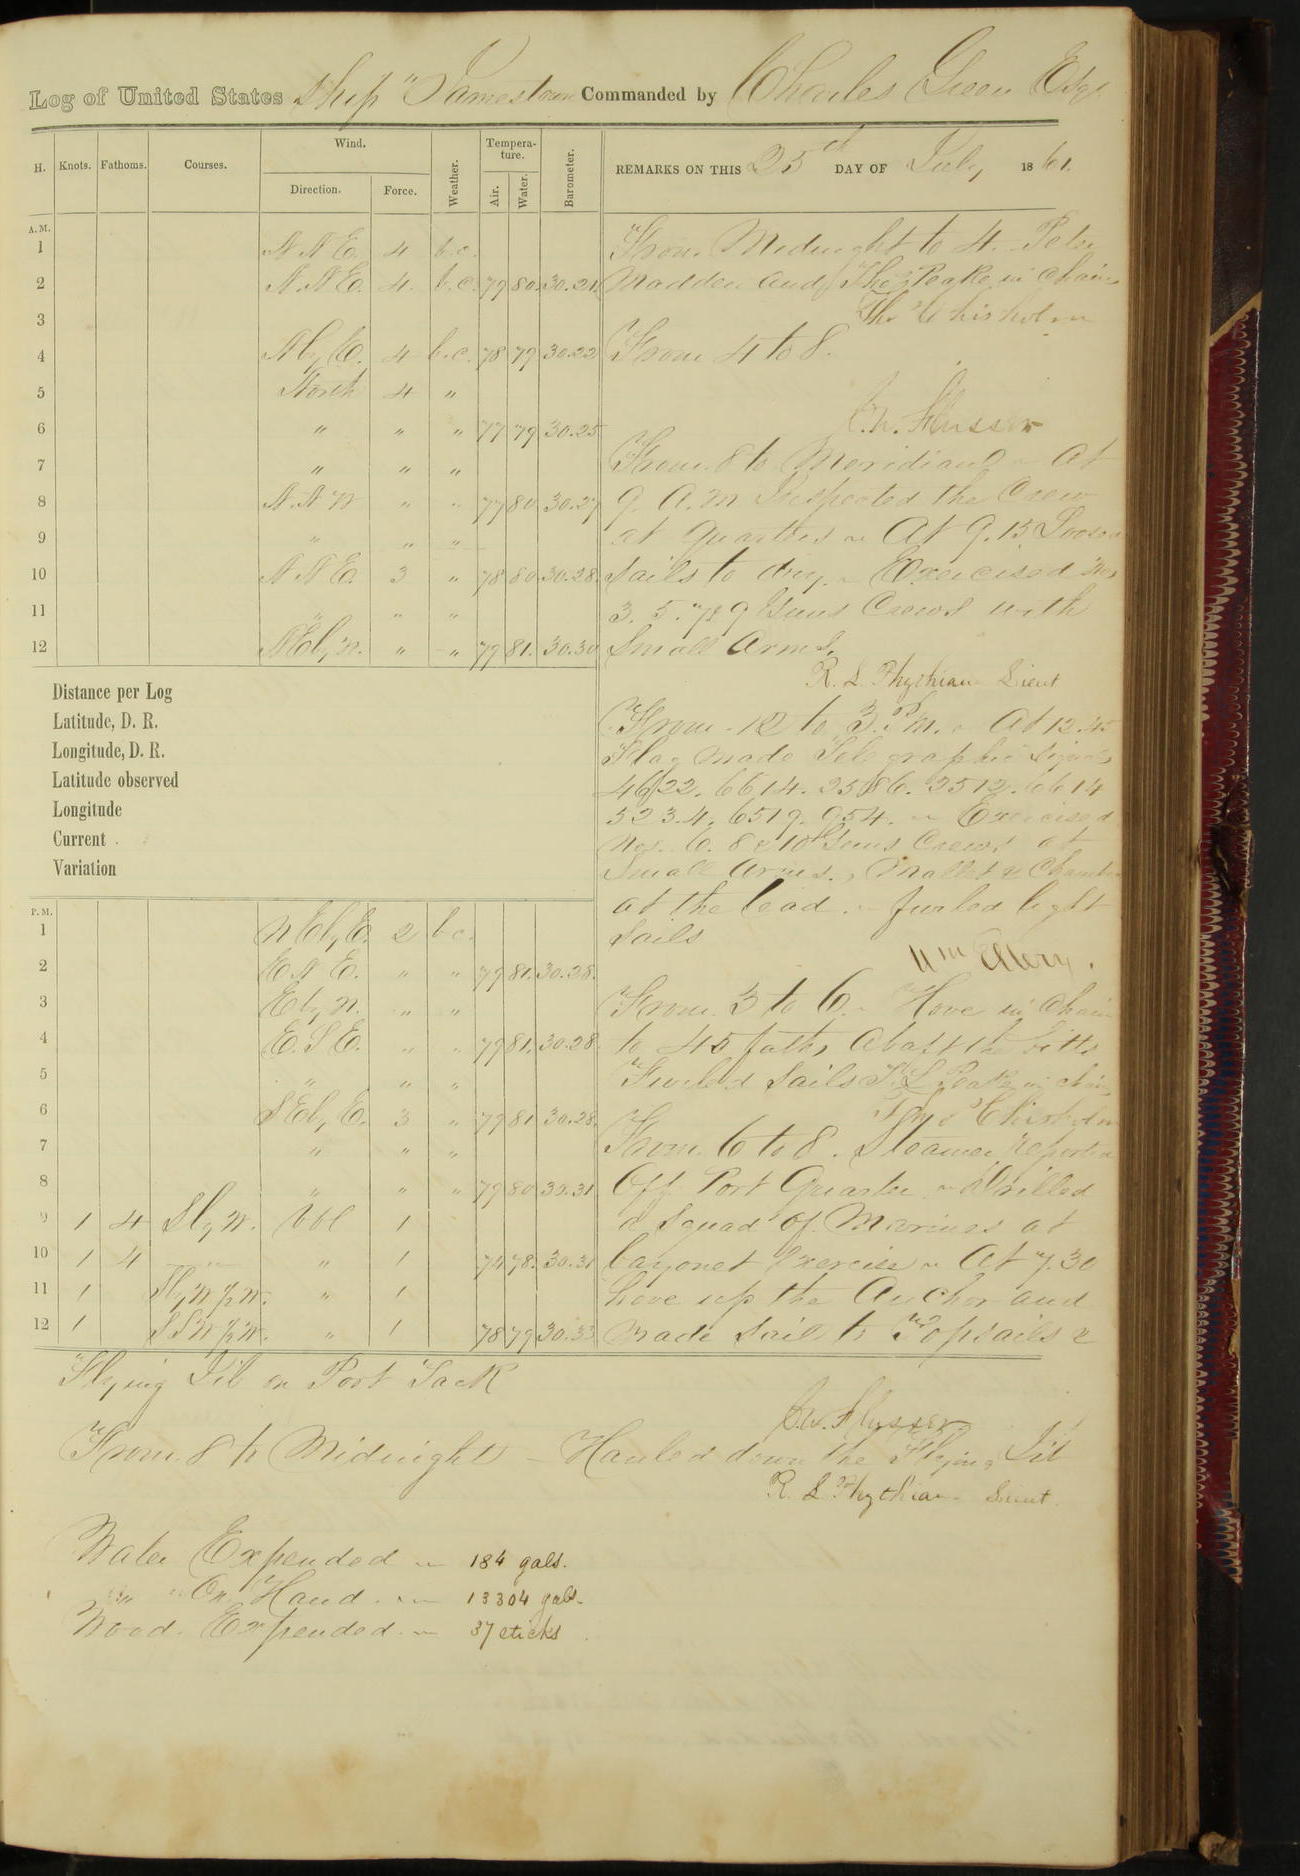 Log of United States Ship "Jamestown Commanded by Charles Green Esqr
H. Knots. Fathoms. Courses. Wind. Direction. Force. Weather. Tempera-ture. Air. Water. Barometer. REMARKS ON THIS 25th DAY OF July 1861.
A.M.
1 N N E. 4 b.c. From Midnight to 4. Peter
2 N.N E. 4. b.c. 79 80. 30.21 Madden and Thos Peake in chains
3 Thos Chisholm
4 N by E. 4 b.c. 78 79 30.22 From 4 to 8.
5 North 4 "
6 " " " 77 79 30.25 C.W. Flusser
7 " " " From 8 to Meridian ~ At
8 N.N W " " 77 80 30.27 9. A.M Inspected the Crew
9 " " " at quarters ~ At 9.15 Loosed
10 N N E. 3 " 78 80 30.28. Sails to dry. ~ Exercised Nos
11 " " " 3. 5. 7 & 9 Guns Crews with
12 N E by N. " " 79 81. 30.30 Small Arms.
R. L. Phythian Lieut
Distance per Log
Latitude, D. R.
Longitude, D. R.
Latitude observed
Longitude
Current
Variation
From 12 to 3. P.M. ~ At 12.45
Flag made Telegraphic signals
4622. 6614. 2586. 2512. 6614
5234. 6519. 954. ~ Exercised
Nos. 6. 8 & 10 Guns Crews at
Small Arms.
at the lead. ~ furled light
Sails
Wm Ellery.
P.M.
1 N E by E. 2 b c.
2 E N E. " " 79 81. 30.28.
3 E by N. " " From 3 to 6. ~ Hove in chain
4 E. S E. " " 79 81. 30.28. to 45 faths abaft the bitts
5 " " " Furled Sails T. L Peake in chains
6 S E by E. 3 " 79 81 30.28. Thos Chisholm
7 " " " From 6 to 8. Steamer reported
8 " " " 79 80 30.31 Off Port Quarter ~ Drilled
9 1 4 S by W. Vbl 1 a Squad of Marines at
10 1 4 " " 1 74 78. 30.31 bayonet exercise ~ At 7.30
11 1 S by W ½ W. " 1 hove up the Anchor and
12 1 S S W ½ W. " 1 78 79 30.33 made Sail to Topsails &
Flying Jib on Port Tack
C.W. Flusser
From 8 to Midnight – Hauled down the Flying Jib
R. L. Phythian Lieut.
Water Expended ~ 184 gals.
" On Hand. ~ 13304 gals.
Wood. Expended. ~ 37 sticks